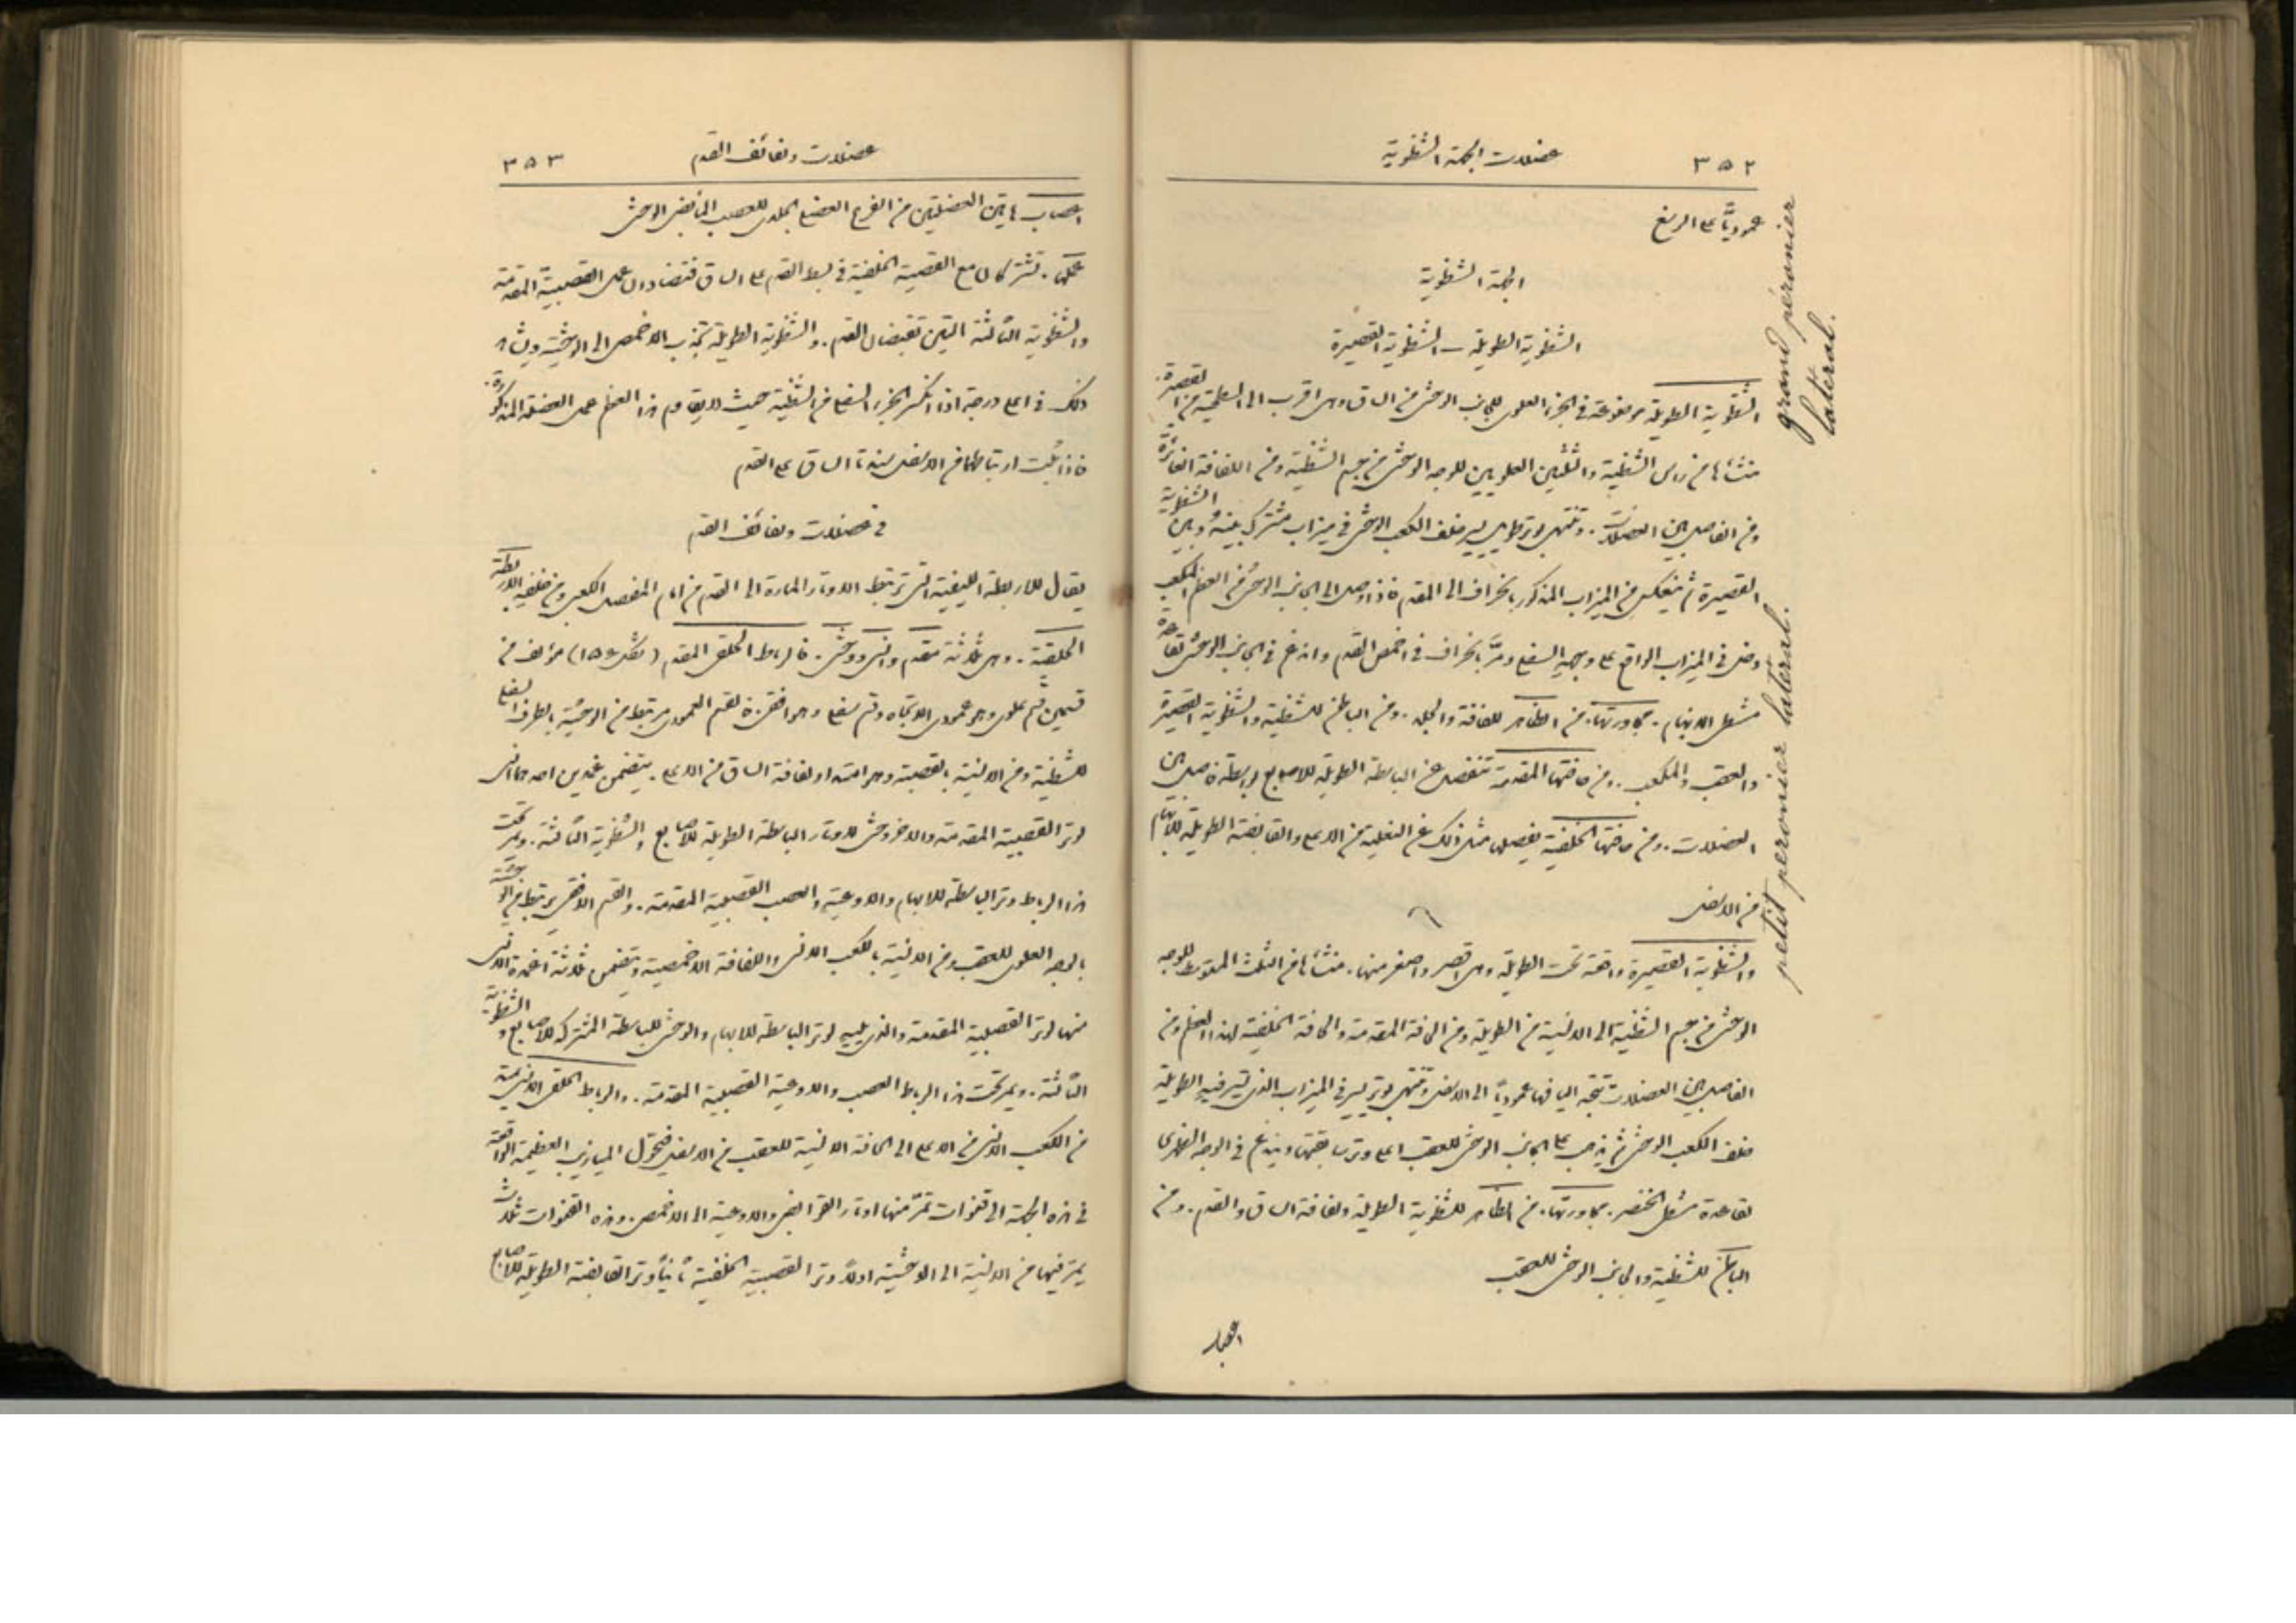 ٣٥٢ عضلات الجهة الشظوية
عموديًّا على الرسغ
الجهة الشظوية
الشظوية الطويلة – الشظوية القصيرة
الشظوية الطويلة موضوعة في الجزء العلوي للجانب الوحشي من الساق وهي اقرب الى السطحية من القصيرة.
منشأها من راس الشظية والثلثين العلويين للوجه الوحشي من جسم الشظية ومن اللفافة الغائرة
ومن الفاصل بين العضلات. وتنتهي بوتر طويل يسير خلف الكعب الوحشي في ميزاب مشترك بينه وبين الشظوية
القصيرة ثم ينعكس من الميزاب المذكور بانحراف الى المقدم فاذا وصل الى الجانب الوحشي من العظم المكعب
دخل في الميزاب الواقع على وجهه السفلي ومرَّ بانحراف في اخمص القدم واندغم في الجانب الوحشي لقاعدة
مشط الابهام. مجاورتها. من الظاهر للفافة والجلد. ومن الباطن للشظية والشظوية القصيرة
والعقب والمكعب. ومن حافتها المقدمة تنفصل عن الباسطة الطويلة للاصابع بواسطة فاصل بين
العضلات. ومن حافتها الخلفية يفصل مثل ذلك عن النعلية من الاعلى والقابضة الطويلة للابهام
من الاسفل
والشظوية القصيرة واقعة تحت الطويلة وهي اقصر واصغر منها. منشأها من الثلث المتوسط للوجه
الوحشي من جسم الشظية الى الانسية من الطويلة ومن الحافة المقدمة والحافة الخلفية لهذا العظم ومن
الفاصل بين العضلات تتجه اليافها عموديًا الى الاسفل وتنتهي بوتر يسير في الميزاب الذي تسير فيه الطويلة
خلف الكعب الوحشي ثم يذهب على الجانب الوحشي للعقب اعلى وتر رفيقتها ويندغم في الوجه الظهري
لقاعدة مشط الخنصر. مجاورتها. من الظاهر للشظوية الطويلة ولفافة الساق والقدم. ومن
الباطن للشظية والجانب الوحشي للعقب
اعصاب
grand péronier
latéral.
petit peronier latéral.
عضلات ولفائف القدم ٣٥٣
اعصاب هاتين العضلتين من الفرع العضلي الجلدي للعصب المأبضي الوحشي
عملهما. تشتركان مع القصبية الخلفية في بسط القدم على الساق فتضادان عمل القصبية المقدمة
والشظوية الثالثة اللتين تقبضان القدم. والشظوية الطويلة تجذب الاخمص الى الوحشية ويشاهد
ذلك في اعلى درجة اذا انكسر الجزء السفلي من الشظية حيث لا يقاوم هذا العظم عمل العضلة المذكورة.
فاذا ثبت ارتباطهما من الاسفل سندتا الساق على القدم
في عضلات ولفائف القدم
يقال للاربطة الليفية التي تربط الاوتار المارة الى القدم من امام المفصل الكعبي ومن خلفه الاربطة
الحلقية. وهي ثلاثة مقدم وانسي ووحشي. فالرباط الحلقي المقدم (شكل ١٥٤) مؤلف من
قسمين قسم علوي وهو عمودي الاتجاه وقسم سفلي وهو افقي. فالقسم العمودي مرتبط من الوحشية بالطرف السفلي
للشظية ومن الانسية بالقصبة وهو امتداد لفافة الساق من الاعلى. يتضمن غمدين احدهما انسي
لوتر القصبية المقدمة والاخر وحشي لاوتار الباسطة الطويلة للاصابع والشظوية الثالثة. ويمر تحت
هذا الرباط وتر الباسطة للابهام والاوعية والعصب القصبية المقدمة. والقسم الافقي يرتبط من الوحشية
بالوجه العلوي للعقب ومن الانسية بالكعب الانسي واللفافة الاخمصية ويتضمن ثلاثة اغمدة الانسي
منها لوتر القصبية المقدمة والذي يليه لوتر الباسطة للابهام والوحشي للباسطة المشتركة للاصابع والشظوية
الثالثة. ويمر تحت هذا الرباط العصب والاوعية القصبية المقدمة. والرباط الحلقي الانسي يمتد
من الكعب الانسي من الاعلى الى الحافة الانسية للعقب من الاسفل فتتحول الميازيب العظيمة الواقعة
في هذه الجهة الى قنوات تمرّ منها اوتار القوابض والاوعية الى الاخمص. وهذه القنوات ثلاث
يمر فيها من الانسية الى الوحشية اولًا وتر القصبية الخلفية ثانيًا وتر القابضة الطويلة للاصابع